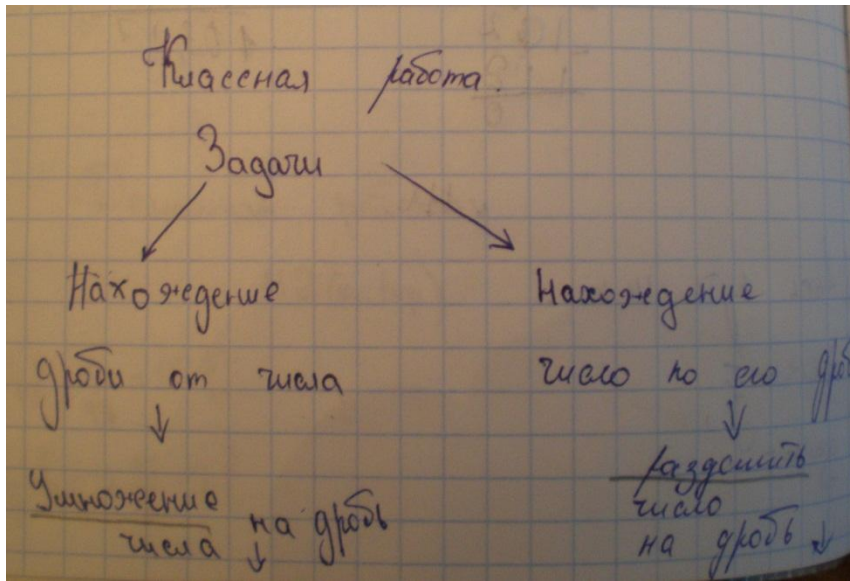 Классная работа.
Задачи
Нахождение
дроби от числа
Умножение
числа на дробь
Нахождение
число по его дроб
разделить
число
на дробь